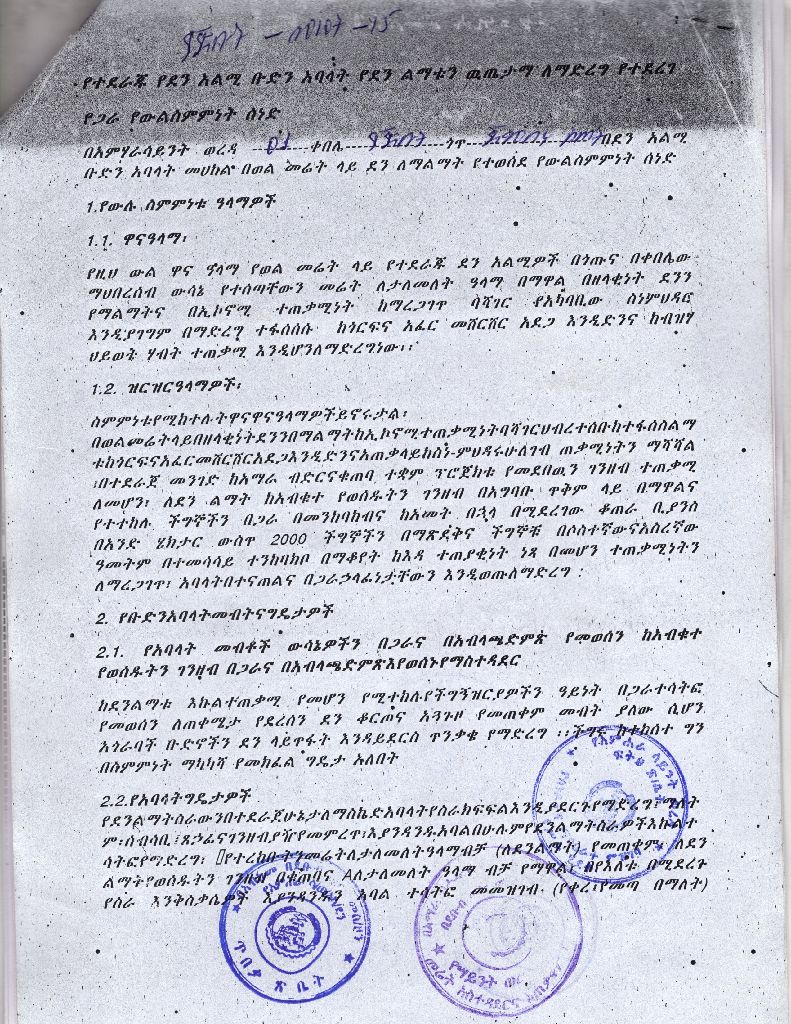 የተደራጁ የደን አልሚ ቡድን አባላት የደን ልማቱን ዉጤታማ ለማድረግ የተደረገ
የጋራ የውልስምምነት ሰነድ
በአምሃራሳይንት ወረዳ 01 ቀበሌ ጎጥ በደን አልሚ
ቡድን አባላት መሀከል በወል መሬት ላይ ደን ለማልማት የተወሰደ የውልስምምነት ሰነድ
1.የውሉ ስምምነቱ ዓላማዎች
1.1. ዋናዓላማ፡
የዚህ ውል ዋና ዓላማ የወል መሬት ላይ የተደራጁ ደን አልሚዎች በጎጡና በቀበሌው
ማህበረሰብ ውሳኔ የተሰጣቸውን መሬት ለታለመለት ዓላማ በማዋል በዘላቂነት ደንን
የማልማትና በኢኮኖሚ ተጠቃሚነት ከማረጋገጥ ባሻገር የአካባቢው ስነምህዳር
እንዲያገግም በማድረግ ተፋሰሱ ከጎርፍና አፈር መሸርሸር አደጋ እንዲድንና ከብዝሃ
ህይወት ሃብት ተጠቃሚ እንዲሆንለማድረግነው፡፡
1.2. ዝርዝርዓላማዎች፡
ስምምነቱየሚከተሉትዋናዋናዓላማዎችይኖሩታል፡
በወልመሬትላይበዘላቂነትደንንበማልማትከኢኮኖሚተጠቃሚነትባሻገርህብረተሰቡከተፋሰስልማ
ቱከጎርፍናአፈርመሸርሸርአደጋእንዲድንናአጠቃላይከስነ-ምህዳሩሁለገብ ጠቃሚነትን ማሻሻል
፤በተደራጀ መንገድ ከአማራ ብድርናቁጠባ ተቋም ፕሮጀክቱ የመደበዉን ገንዘብ ተጠቃሚ
ለመሆን፣ ለደን ልማት ከአብቁተ የወሰዱትን ገንዘብ በአግባቡ ጥቅም ላይ በማዋልና
የተተከሉ ችግኞችን በጋራ በመንከባከብና ከአመት በኋላ በሚደረገው ቆጠራ ቢያንስ
በአንድ ሄክታር ውስጥ 2000 ችግኞችን በማጽደቅና ችግኞቹ በሶስተኛውናአስረኛው
ዓመትም በተመሳሳይ ተንከባክቦ በማቆየት ከእዳ ተጠያቂነት ነጻ በመሆን ተጠቃሚነትን
ለማረጋገጥ፣ አባላትበተናጠልና በጋራኃላፊነታቸውን እንዲወጡለማድረግ ፡
2. የቡድንአባላትመብትናግዴታዎች
2.1. የአባላት መብቶች ውሳኔዎችን በጋራና በአብላጫድምጽ የመወሰን ከአብቁተ
የወሰዱትን ገንዘብ በጋራና በአብላጫድምጽእየወሰኑየማስተዳደር
ከደንልማቱ እኩልተጠቃሚ የመሆን የሚተከሉየችግኝዝርያዎችን ዓይነት በጋራተሳትፎ
የመወሰን ለጠቀሜታ የደረሰን ደን ቆርጦና አጓጉዞ የመጠቀም መብት ያለው ሲሆን
አጎራባች ቡድኖችን ደን ላይጥፋት እንዳይደርስ ጥንቃቄ የማድረግ ፡፡ችግሩ ከተከሰተ ግን
በስምምነት ማካካሻ የመክፈል ግዴታ አለበት
2.2.የአባላትግዴታዎች
የደንልማቱስራውንበተደራጀሁኔታለማስኬድአባላትየስራክፍፍልእንዲያደርጉየማድረግ፣ማለት
ም፡ሰብሳቢ፣ጸኃፊናገንዘብያዥየመምረጥ፣እያንዳንዱአባልበሁሉምየደንልማትስራዎችእኩልተ
ሳትፎየማድረግ፣ የተረከቡትንመሬትለታለመለትዓላማብቻ (ለደንልማት) የመጠቀም፣ ለደን
ልማትየወሰዱትን ገንዘብ በቁጠባና ለታለመለት ዓላማ ብቻ የማዋል፣ በየእለቱ በሚደረጉ
የስራ እንቅስቃሴዎች እያንዳንዱን አባል ተሳትፎ መመዝገብ (የቀረ፣የመጣ በማለት)